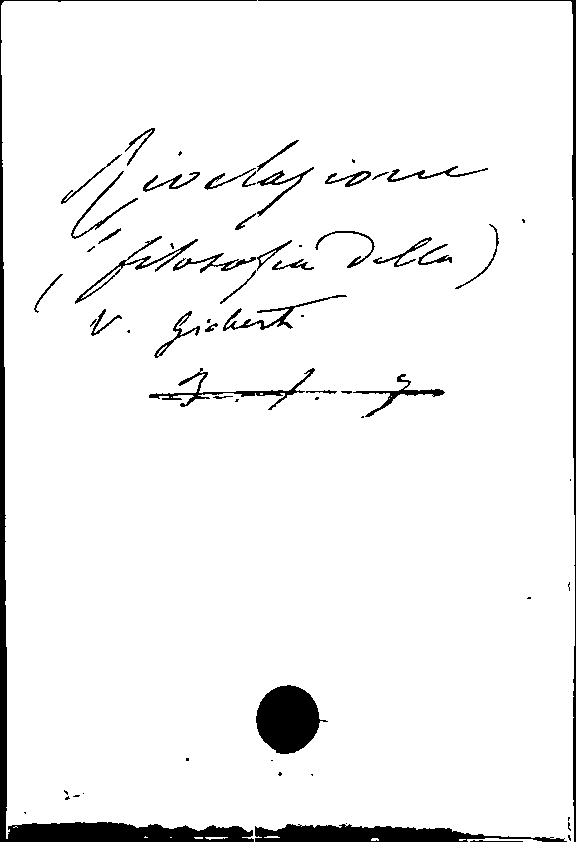 Rivelazione
(filosofia della)
V. Gioberti
3. 1. 9